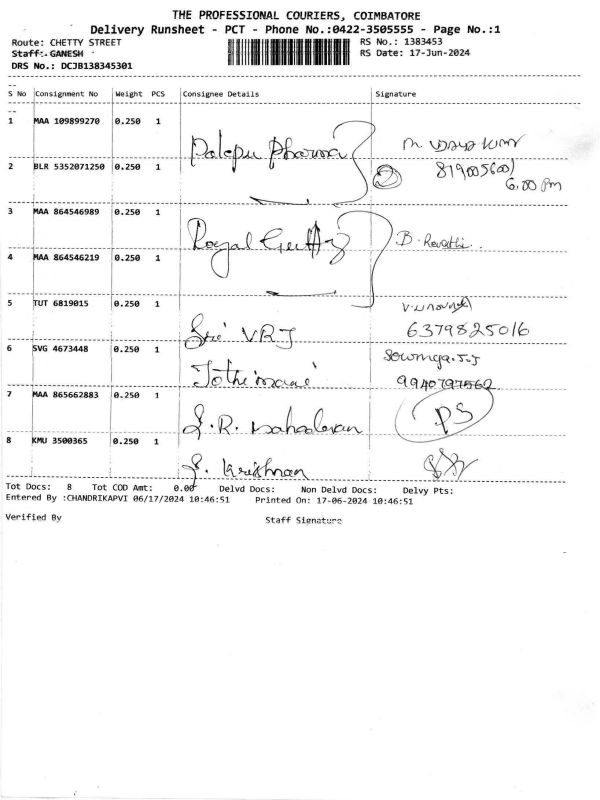 THE PROFESSIONAL COURIERS, COIMBATORE
Delivery Runsheet - PCT - Phone No.:0422-3505555 - Page No.:1
Route: CHETTY STREET RS No.: 1383453
Staff: GANESH RS Date: 17-Jun-2024
DRS No.: DCJB138345301
S No Consignment No Weight PCS Consignee Details Signature
1 MAA 109899270 0.250 1 Palepu Pharma
2 BLR 5352071250 0.250 1
6.00 Pm
3 MAA 864546989 0.250 1 Royal B. Revathi
4 MAA 864546219 0.250 1
5 TUT 6819015 0.250 1 Sri VRJ
6379825016
6 SVG 4673448 0.250 1 Jothimani Sowmya.S.J
9940797562
7 MAA 865662883 0.250 1 S.R. Mahadevan PS
8 KMU 3500365 0.250 1 S. Krishnan
Tot Docs: 8 Tot COD Amt: 0.00 Delvd Docs: Non Delvd Docs: Delvy Pts:
Entered By :CHANDRIKAPVI 06/17/2024 10:46:51 Printed On: 17-06-2024 10:46:51
Verified By Staff Signature